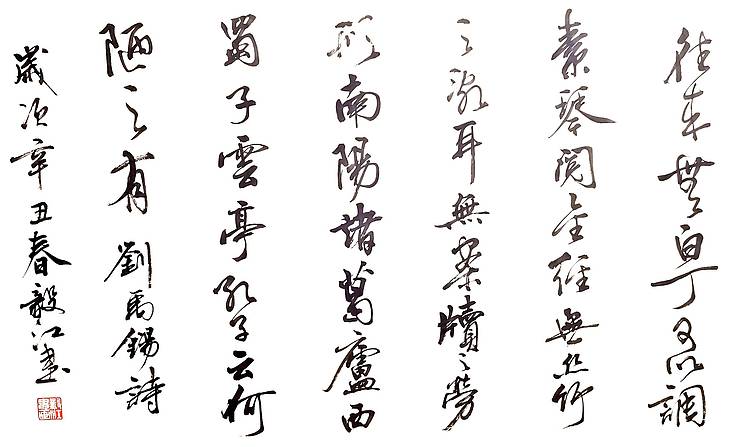 往來無白丁可以調
素琴閱金經無絲竹
之亂耳無案牘之勞
形南陽諸葛廬西
蜀子雲亭孔子云何
陋之有劉禹錫詩
歲次辛丑春毅江書